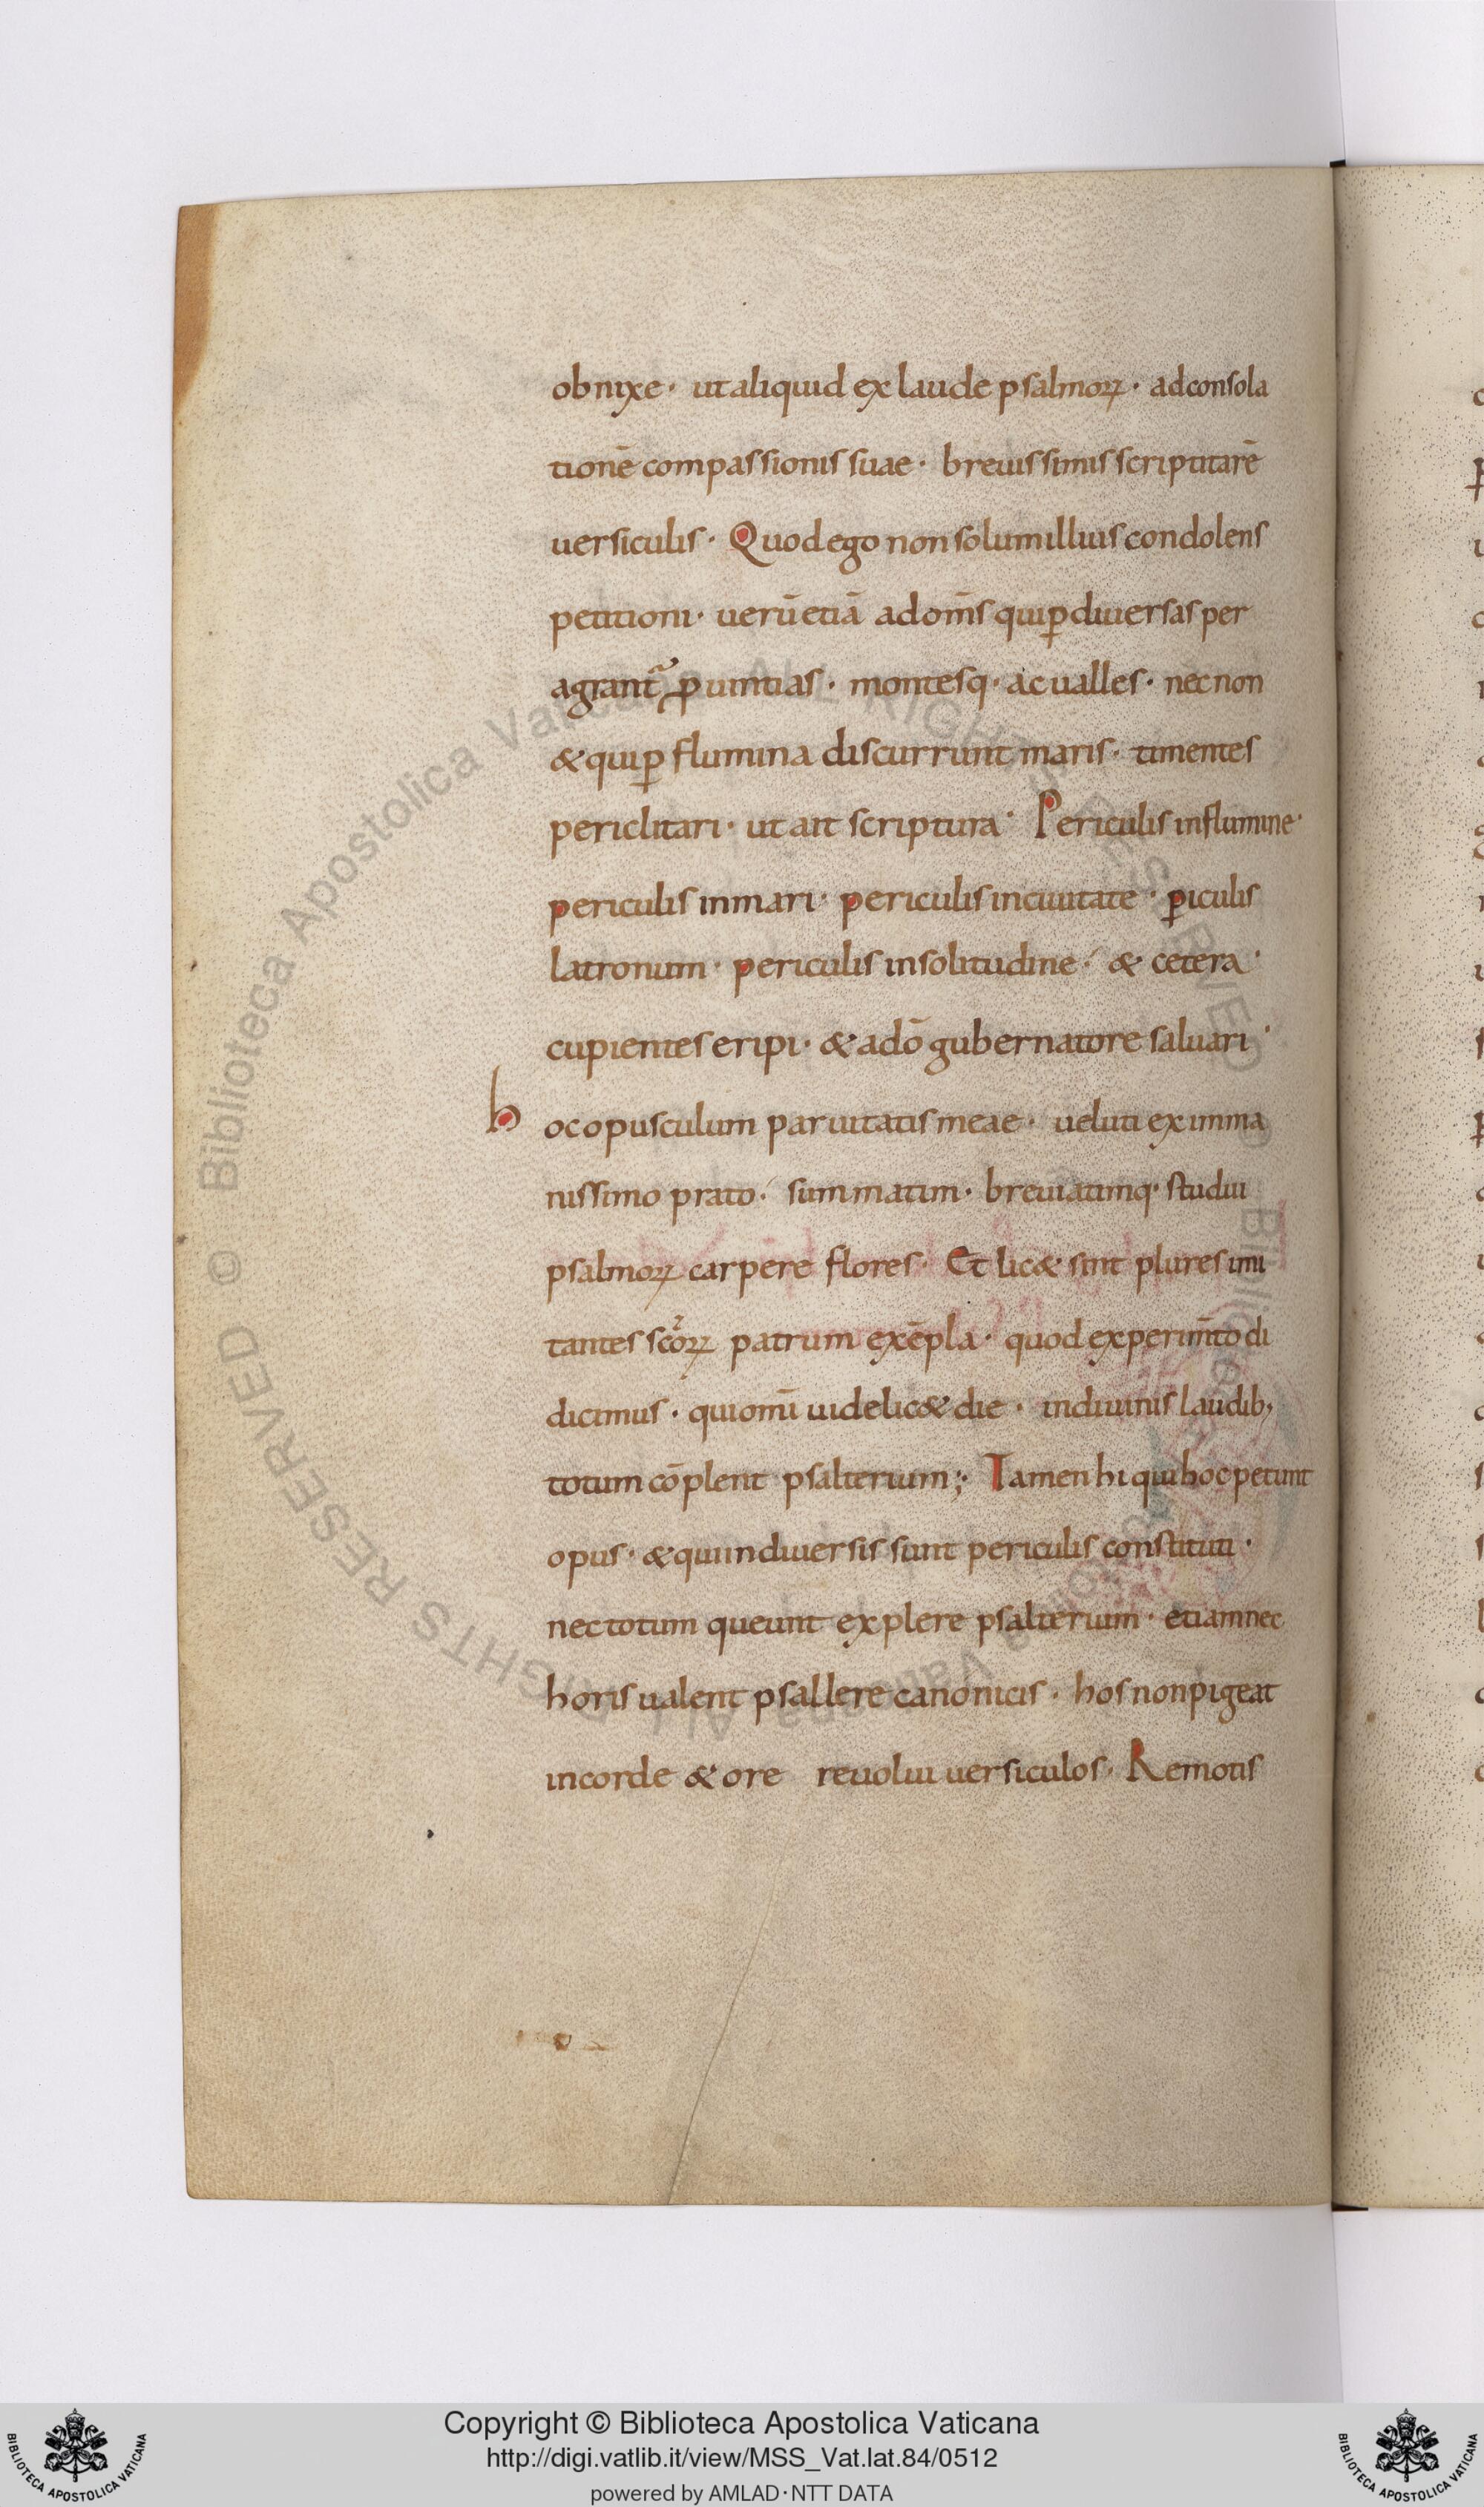 obnixe · ut aliquid ex laude psalmoꝝ · ad consola
tionē compassionis suae · breuissimis scriptitarē
uersiculis · Quod ego non solum illius condolens
petitioni · uerū etiā ad om̄s qui ꝑ diuersas per
agrant᷑ ꝓuintias · montesq· ac ualles · nec non
& qui ꝑ flumina discurrunt maris · timentes
periclitari · ut ait scriptura · Periculis in flumine ·
periculis in mari · periculis in ciuitate · ꝑiculis
latronum · periculis in solitudine · & cetera ·
cupientes eripi · & a dō gubernatore saluari ·
hoc opusculum paruitatis meae · ueluti ex imma
nissimo prato · summatim · breuiatimq· studui
psalmoꝝ carpere flores · Et lic& sint plures imi
tantes sc̄oꝝ patrum exēpla · quod experim̄to di
dicimus · qui omī uidelic& die · in diuinis laudib;
totum cōplent psalterium ; · Tamen hi qui hoc petunt
opus · & qui in diuersis sunt periculis constituti ·
nec totum queunt explere psalterium · etiam nec
horis ualent psallere canonicis · hos non pigeat
in corde & ore reuolui uersiculos · Remotis
Copyright © Biblioteca Apostolica Vaticana
http://digi.vatlib.it/view/MSS_Vat.lat.84/0512
powered by AMLAD·NTT DATA